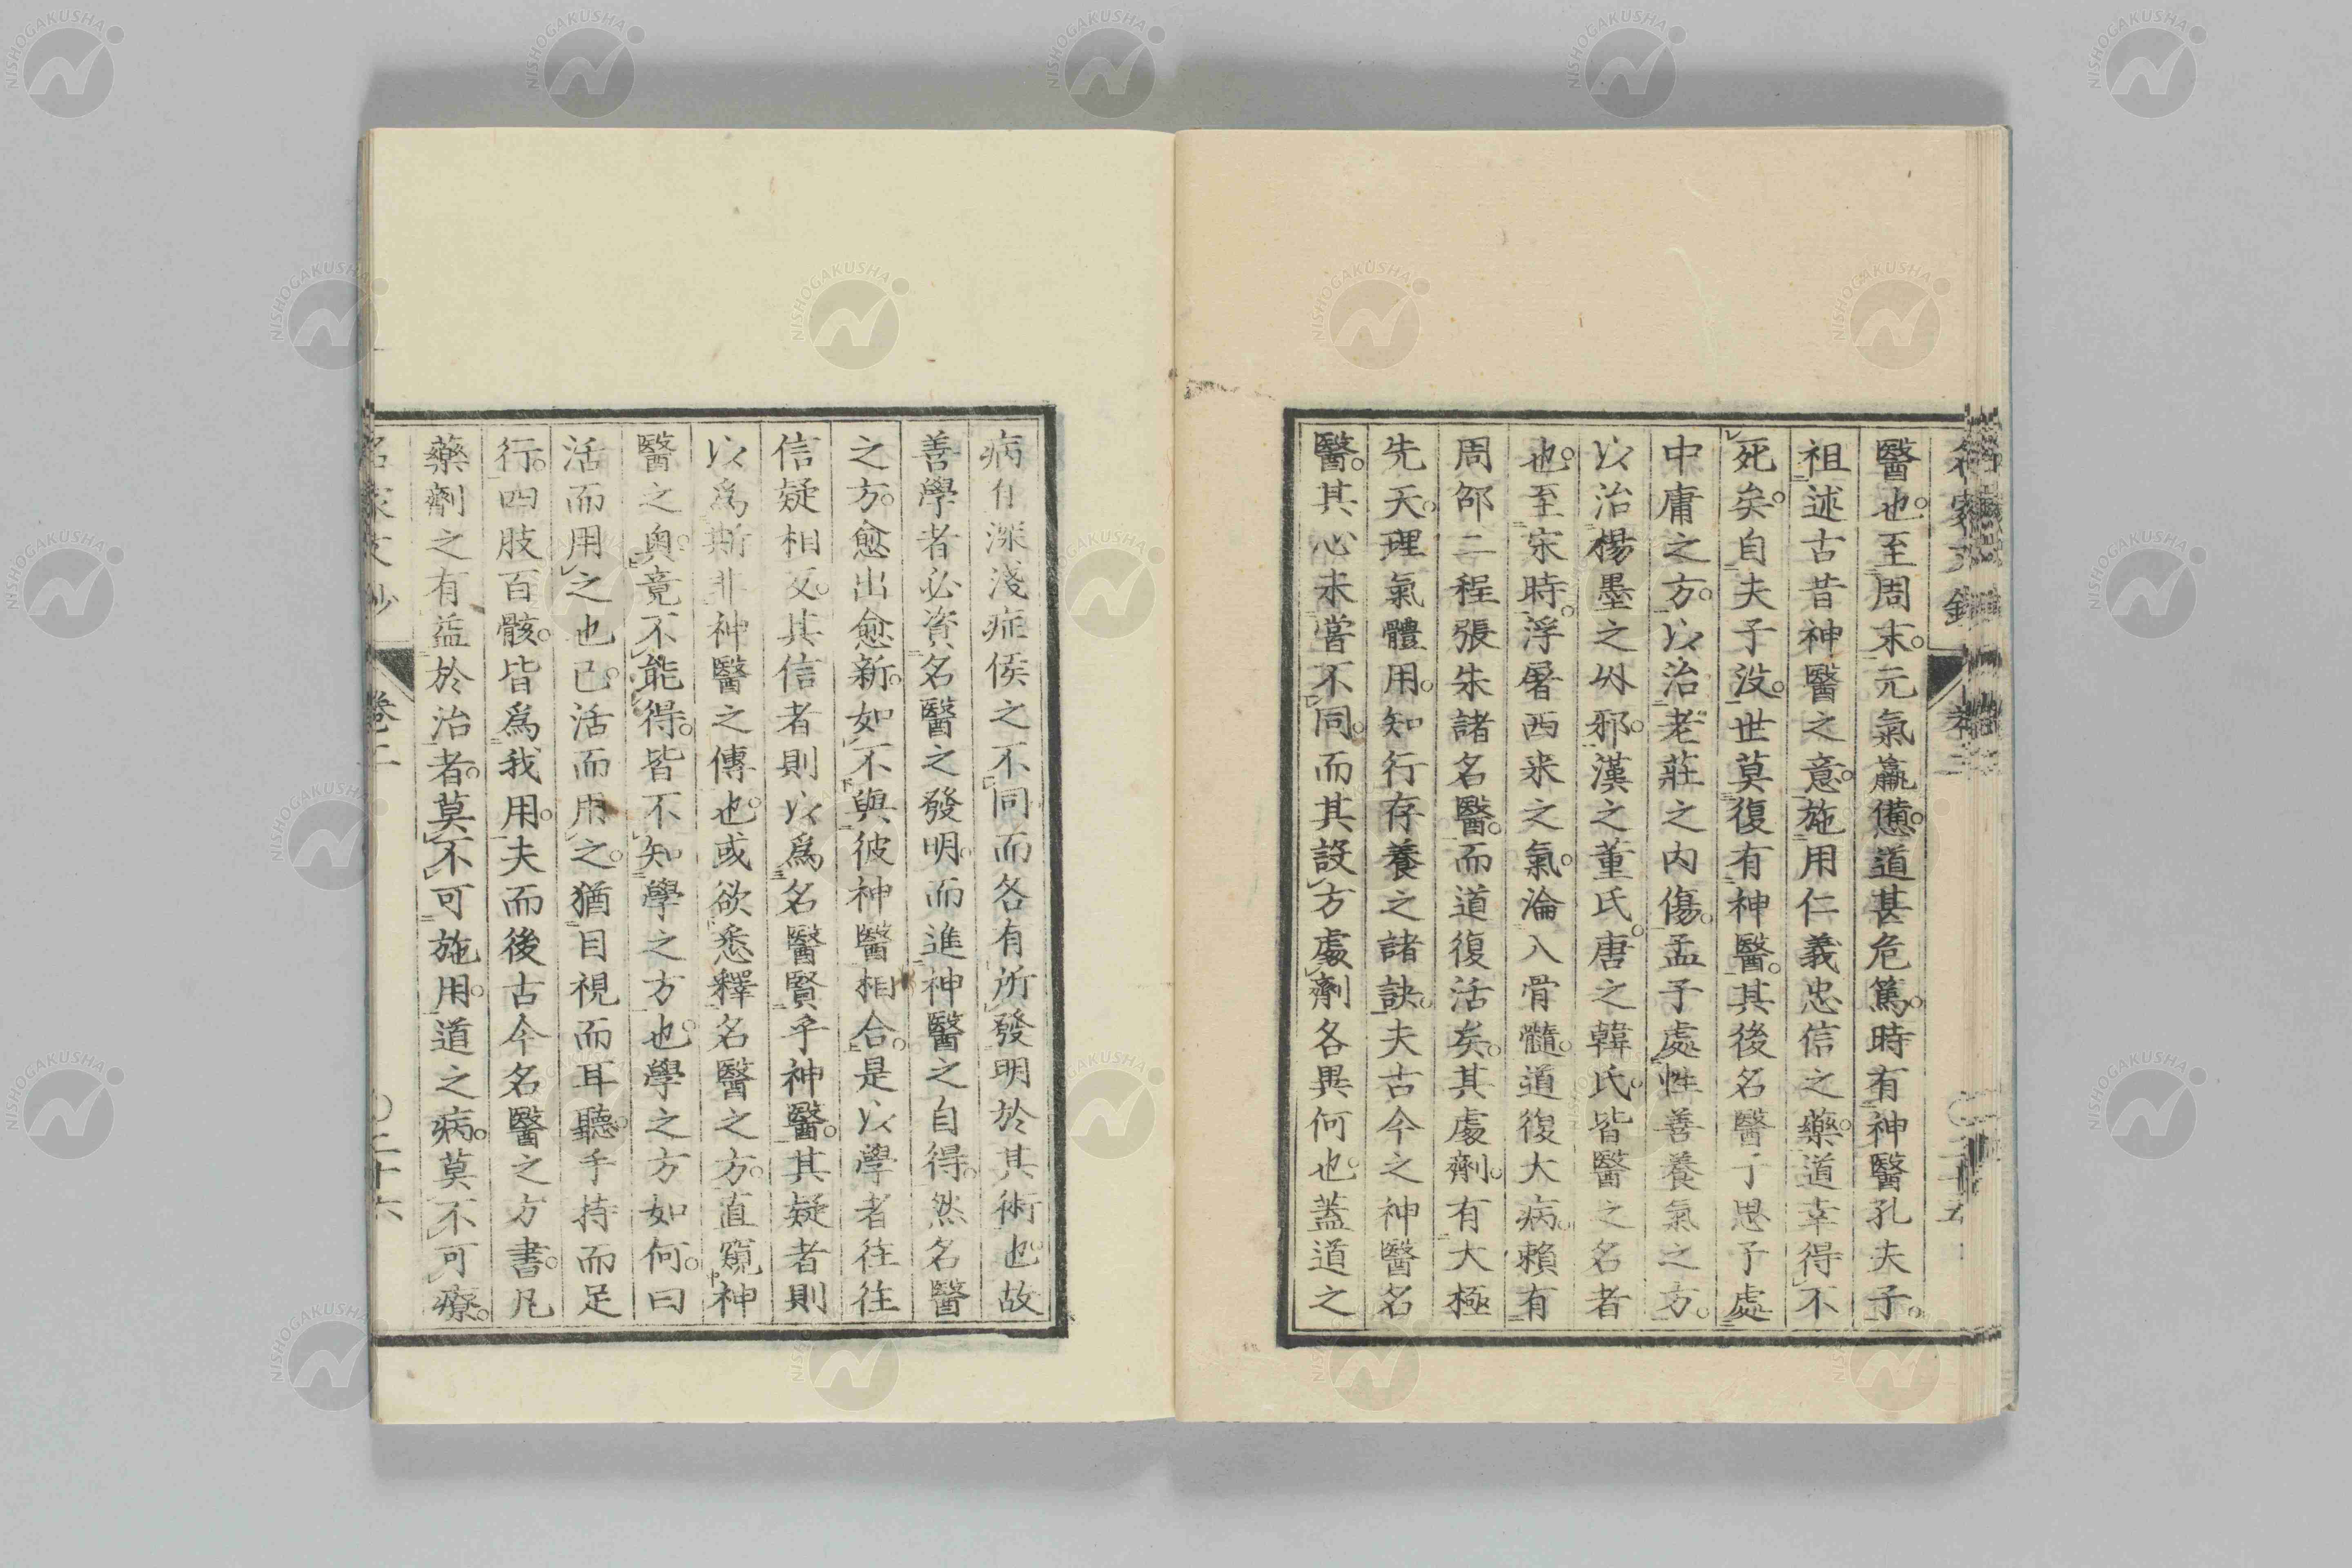 醫也。至周末。元氣羸憊。道甚危篤。時有神醫孔夫子。
祖述古昔神醫之意。施用仁義忠信之藥。道幸得不
死矣。自夫子没。世莫復有神醫。其後名醫子思子處
中庸之方。以治老莊之内傷。孟子處性善養氣之方。
以治楊墨之外邪。漢之董氏。唐之韓氏。皆醫之名者
也。至宋時。浮屠西來之氣。淪入骨髓。道復大病。賴有
周邵二程張朱諸名醫。而道復活矣。其處劑。有大極
先天。理氣體用。知行存養之諸訣。夫古今之神醫名
醫。其心未嘗不同。而其設方處劑各異何也。蓋道之
病有深淺症候之不同而各有所發明於其術也。故
善學者必資名醫之發明。而進神醫之自得。然名醫
之方。愈出愈新。如不與彼神醫相合。是以學者往往
信疑相反。其信者則以爲名醫賢乎神醫。其疑者則
以爲斯非神醫之傳也。或欲悉釋名醫之方。直窺神
醫之奥。竟不能得。皆不知學之方也。學之方如何。曰
活而用之也已。活而用之。猶目視而耳聽。手持而足
行。四肢百骸。皆爲我用。夫而後古今名醫之方書。凡
藥劑之有益於治者。莫不可施用。道之病。莫不可療。
名家文鈔
卷二
○二十六